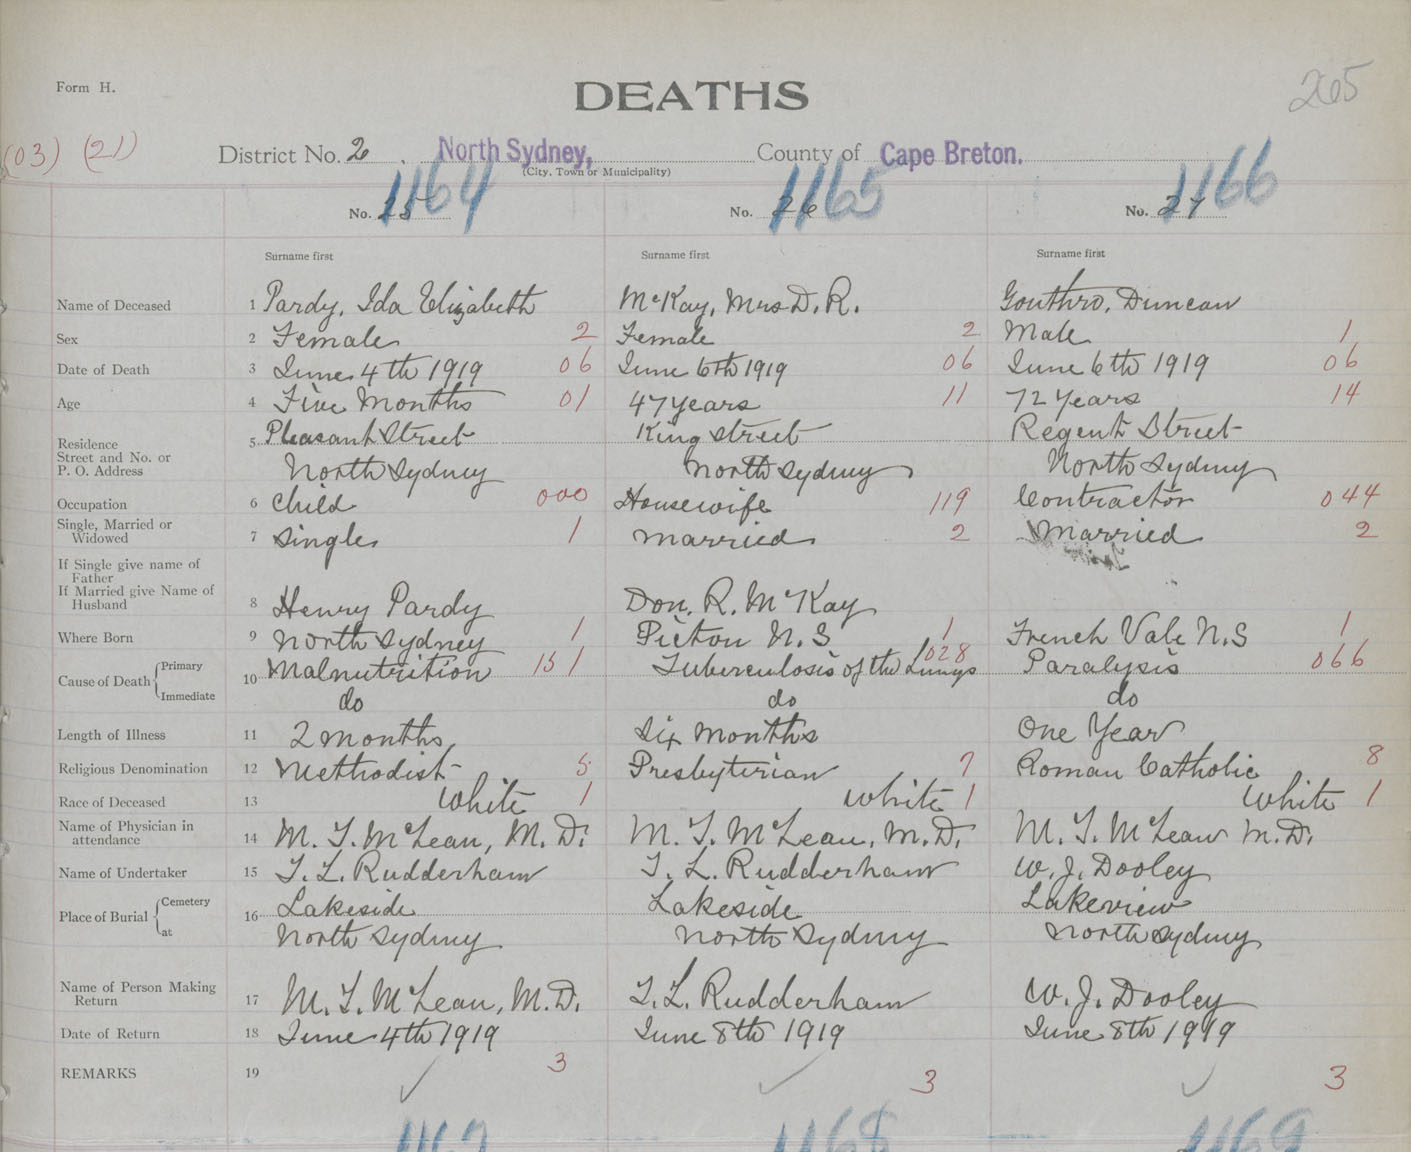 Form H.
DEATHS
265
(03) (21)
District No. 2. North Sydney, County of Cape Breton.
(City, Town or Municipality)
1164 1165 1166
No. 25 No. 26 No. 27
Surname first Surname first Surname first
Name of Deceased 1 Pardy, Ida Elizabeth McKay, Mrs D. R. Gouthro, Duncan
Sex 2 Female 2 Female 2 Male 1
Date of Death 3 June 4th 1919 06 June 6th 1919 06 June 6th 1919 06
Age 4 Five Months 01 47 years 11 72 Years 14
Residence Street and No. or P. O. Address 5 Pleasant Street King Street Regent Street
North Sydney North Sydney North Sydney
Occupation 6 Child 000 Housewife 119 Contractor 044
Single, Married or Widowed 7 Single 1 Married 2 Married 2
If Single give name of Father
If Married give Name of Husband 8 Henry Pardy Don. R. McKay
Where Born 9 North Sydney 1 Picton N. S 1 French Vale N.S 1
Cause of Death Primary 10 Malnutrition 151 Tuberculosis of the Lungs 028 Paralysis 066
Immediate do do do
Length of Illness 11 2 months Six Months One Year
Religious Denomination 12 Methodist 5 Presbyterian 7 Roman Catholic 8
Race of Deceased 13 White 1 White 1 White 1
Name of Physician in attendance 14 M. T. McLean, M. D. M. T. McLean, M. D. M. T. McLean M. D.
Name of Undertaker 15 T. L. Rudderham T. L. Rudderham W. J. Dooley
Place of Burial Cemetery 16 Lakeside Lakeside Lakeview
at North Sydney North Sydney North Sydney
Name of Person Making Return 17 M. T. McLean, M. D. T. L. Rudderham W. J. Dooley
Date of Return 18 June 4th 1919 June 8th 1919 June 8th 1919
REMARKS 19 3 3 3
1167 1168 1169